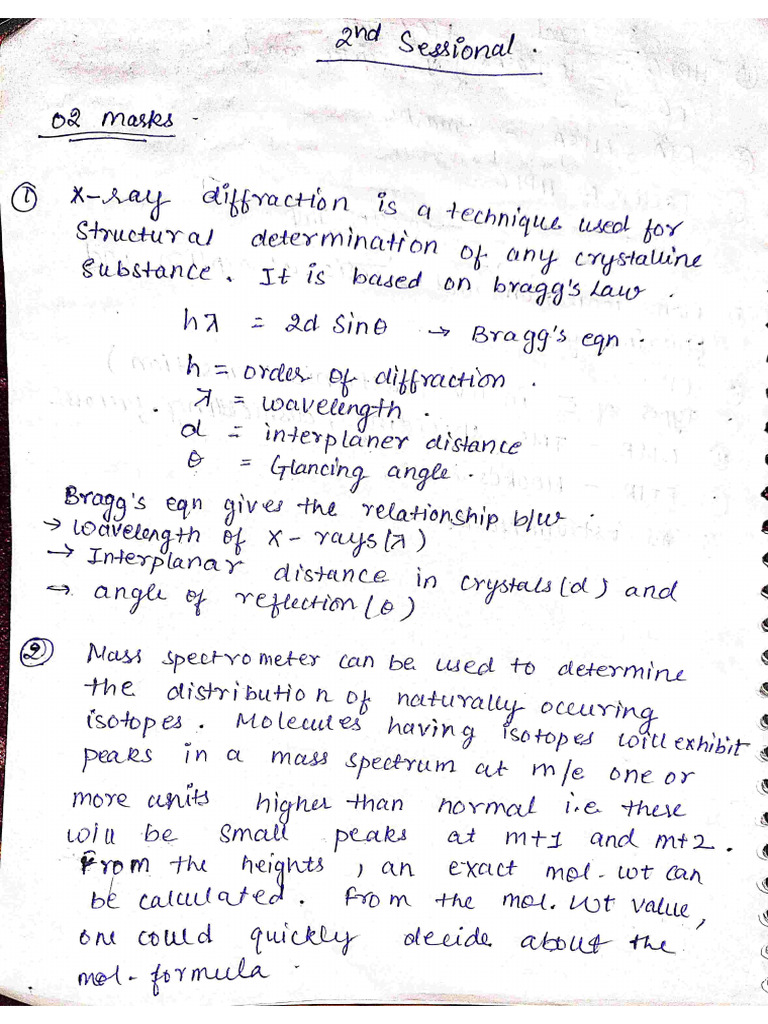 2nd Sessional.
02 Marks -
① X-ray diffraction is a technique used for
structural determination of any crystalline
substance. It is based on bragg's Law.
hλ = 2d Sinθ → Bragg's eqn.
h = order of diffraction.
λ = wavelength.
d = interplaner distance
θ = Glancing angle.
Bragg's eqn gives the relationship b/w.
→ Wavelength of X-rays(λ)
→ Interplanar distance in crystals(d) and
→ angle of reflection(θ)
② Mass spectrometer can be used to determine
the distribution of naturally occuring
isotopes. Molecules having isotopes will exhibit
peaks in a mass spectrum at m/e one or
more units higher than normal i.e these
will be small peaks at m+1 and m+2.
From the heights, an exact mol-wt can
be calculated. From the mol. wt value,
one could quickly decide about the
mol-formula.